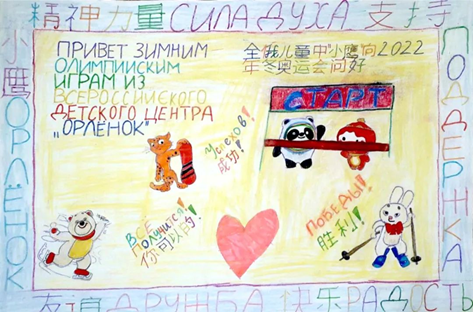 精神力量 СИЛА ДУХА 支持
小鹰 ОРЛЁНОК
ПРИВЕТ ЗИМНИМ
ОЛИМПИЙСКИМ
ИГРАМ ИЗ
ВСЕРОССИЙСКОГО
ДЕТСКОГО ЦЕНТРА
„ОРЛЁНОК"
全俄儿童中"小鹰向2022
年冬奥运会问好
СТАРТ
Успехов!
成功!
ВСЁ
Получится!
你可以的!
ПОБЕДЫ!
胜利!
ПОДДЕРЖКА
友谊 ДРУЖБА 快乐 РАДОСТЬ